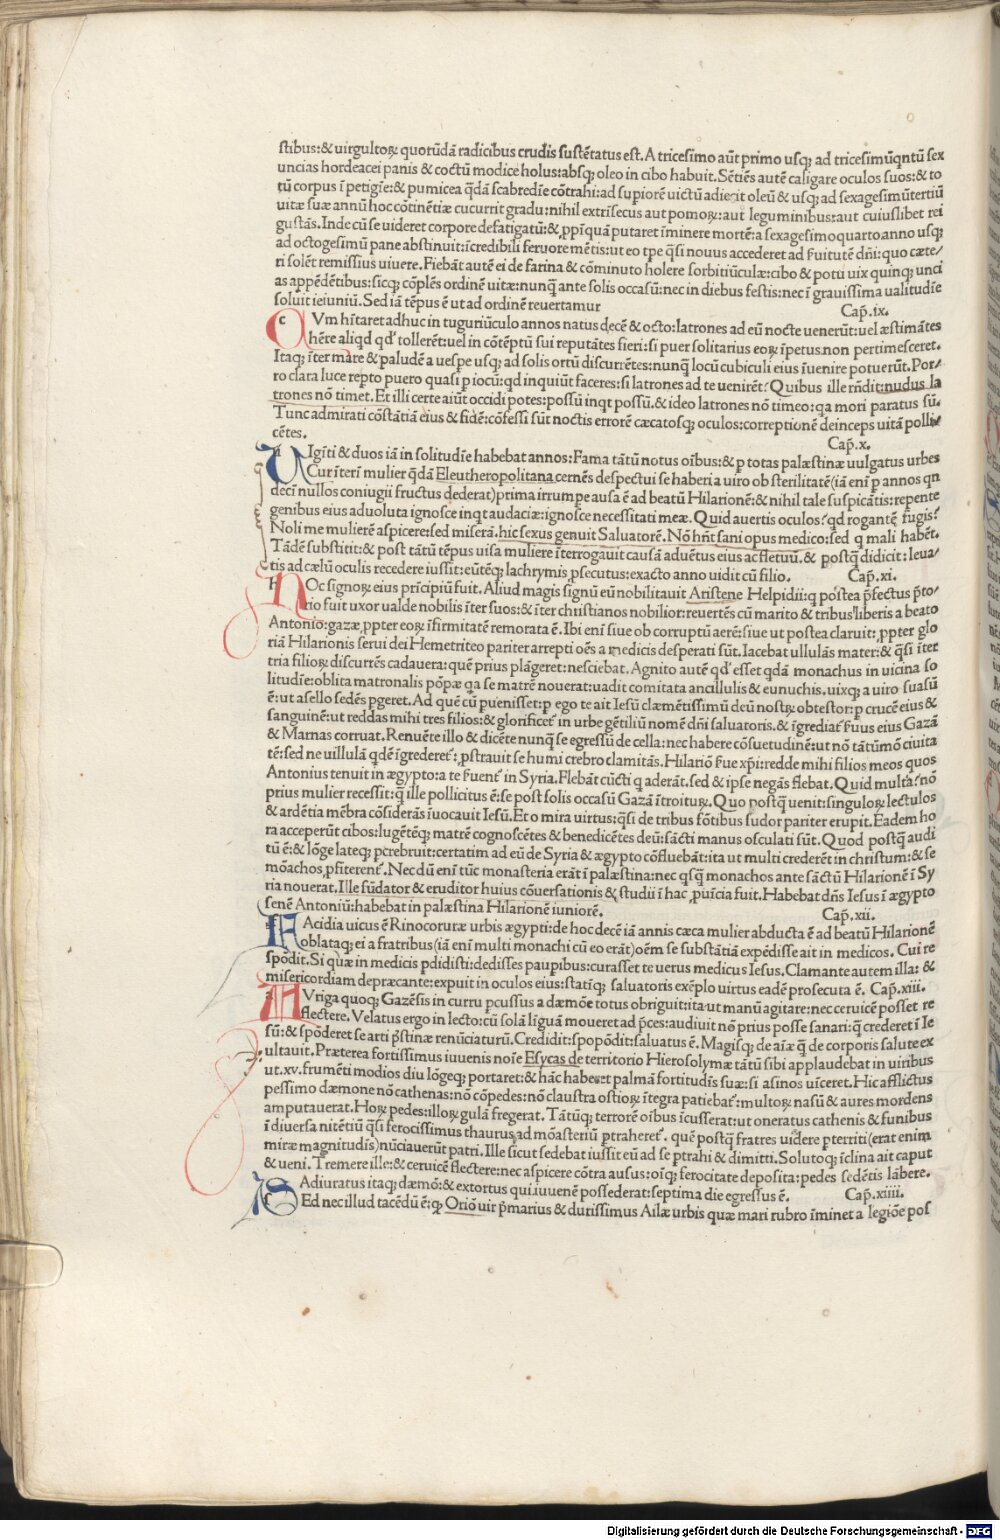 stibus:& uirgultoꝝ quotūdā radicibus crudis sustētatus est. A tricesimo aūt primo usq; ad tricesimūqntū sex
uncias hordeacei panis & coctū modice holus:absq; oleo in cibo habuit. Sētiēs autē caligare oculos suos:& to
tū corpus ī petigīe:& pumicea q̄dā scabredīe cōtrahi:ad supiorē uictū adiecit oleū & usq; ad sexagesimūtertiū
uitæ suæ annū hoc cōtinētiæ cucurrit gradu:nihil extrīsecus aut pomoꝝ:aut leguminibus:aut cuiuslibet rei
gustās. Inde cū se uideret corpore defatigatū:& ꝓpīquā putaret īminere mortē:a sexagesimoquarto anno usq;
ad octogesimū pane abstinuit:īcredibili feruore mētis:ut eo tpe q̄si nouus accederet ad ſuitutē dn̄i:quo cæte/
ri solēt remissius uiuere. Fiebāt autē ei de farina & cōminuto holere sorbitiūculæ:cibo & potu uix quinq; unci
as appēdētibus:sicq; cōplēs ordinē uitæ:nunq̄ ante solis occasū:nec in diebus festis:nec ī grauissima ualitudīe
soluit ieiuniū. Sed iā tēpus ē ut ad ordinē reuertamur Cap̄.ix.
c Vm hītaret adhuc in tuguriūculo annos natus decē & octo:latrones ad eū nocte uenerūt:uel æstimātes
hēre aliqd qd' tollerēt:uel in cōtēptū sui reputātes fieri:si puer solitarius eoꝝ īpetus non pertimesceret.
Itaq; īter mare & paludē a uespe usq; ad solis ortū discurrētes:nunq̄ locū cubiculi eius īuenire potuerūt. Por/
ro clara luce repto puero quasi p iocū:qd inquiūt faceres:si latrones ad te uenirēt? Quibus ille rn̄dit:nudus la
trones nō timet. Et illi certe aiūt occidi potes:possū inqt possū.& ideo latrones nō timeo:qa mori paratus sū.
Tunc admirati cōstātiā eius & fidē:cōfessi sūt noctis errorē cæcatosq; oculos:correptionē deinceps uitā polli/
cētes. Cap̄.x.
u Igīti & duos iā in solitudīe habebat annos:Fama tātū notus oībus:& p totas palæstinæ uulgatus urbes
Cur īteri mulier q̄dā Eleutheropolitana cernēs despectui se haberi a uiro ob sterilitatē(iā eni p annos qn
deci nullos coniugii fructus dederat)prima irrumpe ausa ē ad beatū Hilarionē:& nihil tale suspicātis:repente
genibus eius aduoluta ignosce inqt audaciæ:ignosce necessitati meæ. Quid auertis oculos? qd rogantē fugis?
Noli me mulierē aspicere:sed miserā.hic sexus genuit Saluatorē. Nō hn̄t sani opus medico:sed q mali habēt.
Tādē substitit:& post tātū tēpus uisa muliere īterrogauit causā aduētus eius ac fletuū.& postq̄ didicit:leua/
tis ad cælū oculis recedere iussit:eūtēq; lachrymis ꝓsecutus:exacto anno uidit cū filio. Cap̄.xi.
h Oc signoꝝ eius prīcipiū fuit. Aliud magis signū eū nobilitauit Aristene Helpidii:q postea p̄fectus p̄to/
rio fuit uxor ualde nobilis īter suos:& īter christianos nobilior:reuertēs cū marito & tribus liberis a beato
Antonio:gazæ ꝓpter eoꝝ īfirmitatē remorata ē. Ibi eni siue ob corruptū aerē:siue ut postea claruit:ꝓpter glo
riā Hilarionis serui dei Hemetriteo pariter arrepti oēs a medicis desperati sūt. Iacebat ullulās mater:& q̄si īter
tria filioꝝ discurrēs cadauera:quē prius plāgeret:nesciebat. Agnito autē qd' esset qdā monachus in uicina so
litudīe:oblita matronalis pōpæ qa se matrē nouerat:uadit comitata ancillulis & eunuchis.uixq; a uiro suasū
ē:ut asello sedēs pgeret. Ad quē cū puenisset:p ego te ait Iesū clæmētissimū deū nostꝝ obtestor:p crucē eius &
sanguinē:ut reddas mihi tres filios:& glorificet' in urbe gētiliū nomē dn̄i saluatoris.& īgrediat' ſuus eius Gazā
& Marnas corruat. Renuēte illo & dicēte nunq̄ se egressū de cella:nec habere cōsuetudinē:ut nō tātūmō ciuita
tē:sed ne uillulā qdē īgrederet':ꝓstrauit se humi crebro clamitās. Hilariō ſue xp̄i:redde mihi filios meos quos
Antonius tenuit in ægypto:a te ſuent' in Syria. Flebāt cūcti q aderāt.sed & ipse negās flebat. Quid multa? nō
prius mulier recessit:q̄ ille pollicitus ē:se post solis occasū Gazā ītroituꝝ. Quo postq̄ uenit:singuloꝝ lectulos
& ardētia mēbra cōsiderās iuocauit Iesū. Et o mira uirtus:q̄si de tribus fōtibus sudor pariter erupit. Eadem ho
ra acceperūt cibos:lugētēq; matrē cognoscētes & benedicētes deū:sācti manus osculati sūt. Quod postq̄ audi
tū ē:& lōge lateq; pcrebruit:certatim ad eū de Syria & ægypto cōfluebāt:ita ut multi crederēt in christum:& se
mōachos ꝓfiterent'. Nec dū eni tūc monasteria erāt ī palæstina:nec qsq̄ monachos ante sāctū Hilarionē ī Sy
ria nouerat. Ille fūdator & eruditor huius cōuersationis & studii ī hac ꝓuīcia fuit. Habebat dn̄s Iesus ī ægypto
senē Antoniū:habebat in palæstina Hilarionē iuniorē. Cap̄.xii.
f Acidia uicus ē Rinocorutæ urbis ægypti:de hoc decē iā annis cæca mulier abducta ē ad beatū Hilarionē
oblataq; ei a fratribus(iā eni multi monachi cū eo erāt)oēm se substātiā expēdisse ait in medicos. Cui re
spōdit. Si quæ in medicis pdidisti:dedisses paupibus:curasset te uerus medicus Iesus. Clamante autem illa: &
misericordiam depræcante:expuit in oculos eius:statiq; saluatoris exēplo uirtus eadē prosecuta ē. Cap̄.xiii.
a Vriga quoq; Gazēsis in curru pcussus a dæmōe totus obriguit:ita ut manū agitare:nec ceruicē posset re
flectere. Velatus ergo in lecto:cū solā līguā moueret ad p̄ces:audiuit nō prius posse sanari:q̄ crederet ī Ie
sū:& spōderet se arti p̄stinæ renūciaturū. Credidit:spopōdit:saluatus ē. Magisq; de aīæ q̄ de corporis salute ex
ultauit. Præterea fortissimus iuuenis noīe Esycas de territorio Hierosolymæ tātū sibi applaudebat in uiribus
ut.xv.frumēti modios diu lōgeq; portaret:& hāc haberet palmā fortitudīs suæ:si asinos uīceret. Hic afflictus
pessimo dæmone nō cathenas:nō cōpedes:nō claustra ostioꝝ ītegra patiebat':multoꝝ nasū & aures mordens
amputauerat. Hoꝝ pedes:illoꝝ gulā fregerat. Tātūq; terrorē oībus īcusserat:ut oneratus cathenis & funibus
ī diuersa nitētiū q̄si ferocissimus thaurus ad mōasteriū ptraheret'. quē postq̄ fratres uidere pterriti(erat enim
miræ magnitudīs)nūciauerūt patri. Ille sicut sedebat iussit eū ad se ptrahi & dimitti. Solutoq; īclina ait caput
& ueni. Tremere ille:& ceruicē flectere:nec aspicere cōtra ausus:oīq; ferocitate deposita:pedes sedētis lābere.
Adiuratus itaq; dæmō:& extortus qui iuuenē possederat:septima die egressus ē. Cap̄.xiiii.
s Ed nec illud tacēdū ē:qꝫ Oriō uir p̄marius & durissimus Ailæ urbis quæ mari rubro īminet a legiōe pos
Digitalisierung gefördert durch die Deutsche Forschungsgemeinschaft - DFG